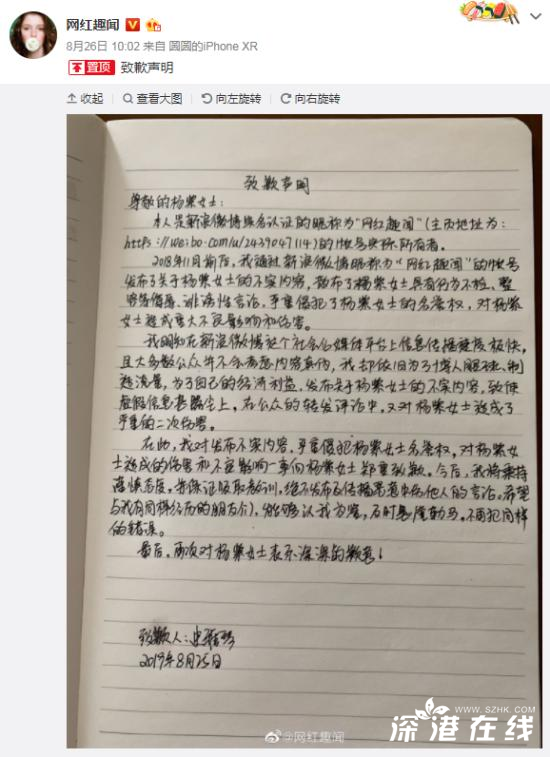 网红趣闻
8月26日 10:02 来自 圆圆的iPhone XR
置顶 致歉声明
收起 查看大图 向左旋转 向右旋转
致歉声明
尊敬的杨幂女士:
本人是新浪微博实名认证的昵称为"网红趣闻"(主页地址为:
https://weibo.com/u/2439047114)的账号实际所有者。
2018年11月前后,我通过新浪微博昵称为"网红趣闻"的账号
发布了关于杨幂女士的不实内容,散布了杨幂女士具有行为不检、
等诽谤性言论,严重侵犯了杨幂女士的名誉权,对杨幂
女士造成重大不良影响和伤害。
我明知在新浪微博这个社会公众媒体平台上信息传播速度极快,
且大多数公众并不会考虑内容真伪,我却依旧为了博人眼球、制
造流量,为了自己的经济利益,发布关于杨幂女士的不实内容,致使
虚假信息甚嚣尘上,在公众的转发评论中,又对杨幂女士造成了
严重的二次伤害。
在此,我对发布不实内容,严重侵犯杨幂女士名誉权,对杨幂女
士造成的伤害和不良影响一事向杨幂女士郑重致歉。今后,我将秉持
谨慎态度,并保证吸取教训,绝不发布及传播恶意中伤他人的言论。希望
与我有同样经历的朋友们,能够以我为鉴,及时悬崖勒马,不再犯同样
的错误。
最后,再次对杨幂女士表示深深的歉意!
致歉人:史
2019年8月25日
@网红趣闻
www.szhk.com
深港在线